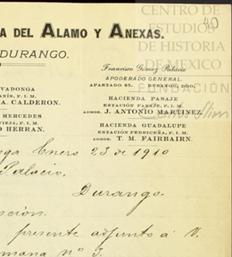 A DEL ALAMO Y ANEXAS.
DURANGO.
CENTRO DE
ESTUDIOS
DE HISTORIA
DE MEXICO
FUNDACIÓN
Francisco Gómez Palacio
APODERADO GENERAL
APARTADO 85. DURANGO, DGO.
VADONGA
F. I. M.
A. CALDERON.
HACIENDA PASAJE
ESTACIÓN PASAJE, F. I. M.
ADMOR. J. ANTONIO MARTINEZ
MERCEDES
F. I. M.
O HERRAN.
HACIENDA GUADALUPE
F. I. M.
ADMOR. T. M. FAIRBAIRN.
Enero 23 de 1910
Palacio.
Durango.
presente adjunto á V.